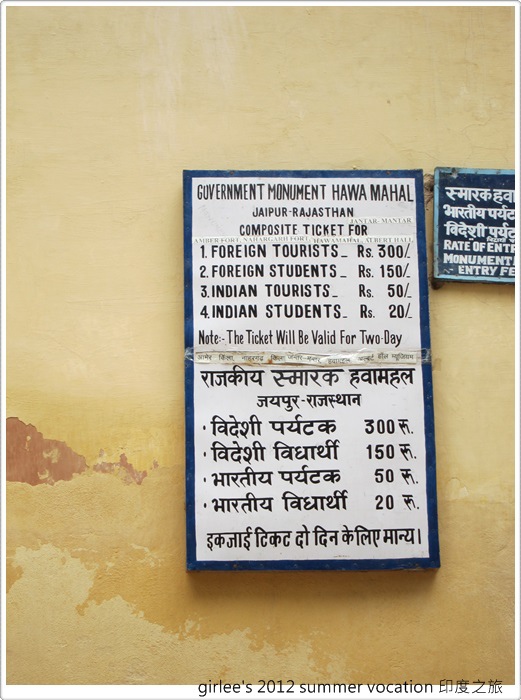 GOVERNMENT MONUMENT HAWA MAHAL
JAIPUR-RAJASTHAN
JANTAR-MANTAR
COMPOSITE TICKET FOR
AMBER FORT, NAHARGARH FORT, HAWAMAHAL, ALBERT HALL
1. FOREIGN TOURISTS_ Rs. 300/-
2. FOREIGN STUDENTS_ Rs. 150/-
3. INDIAN TOURISTS_ Rs. 50/-
4. INDIAN STUDENTS_ Rs. 20/-
Note:- The Ticket Will Be Valid For Two-Day
आमेर किला, नाहरगढ़ किला, जन्तर-मन्तर हवामहल अल्बर्ट हॉल म्यूजियम
राजकीय स्मारक हवामहल
जयपुर-राजस्थान
• विदेशी पर्यटक 300 रू.
• विदेशी विधार्थी 150 रू.
• भारतीय पर्यटक 50 रू.
• भारतीय विधार्थी 20 रू.
इकजाई टिकट दो दिन के लिए मान्य।
स्मारक हवा
भारतीय पर्यट
विदेशी पर्यट
RATE OF ENT
MONUMENT
ENTRY FE
girlee's 2012 summer vocation 印度之旅